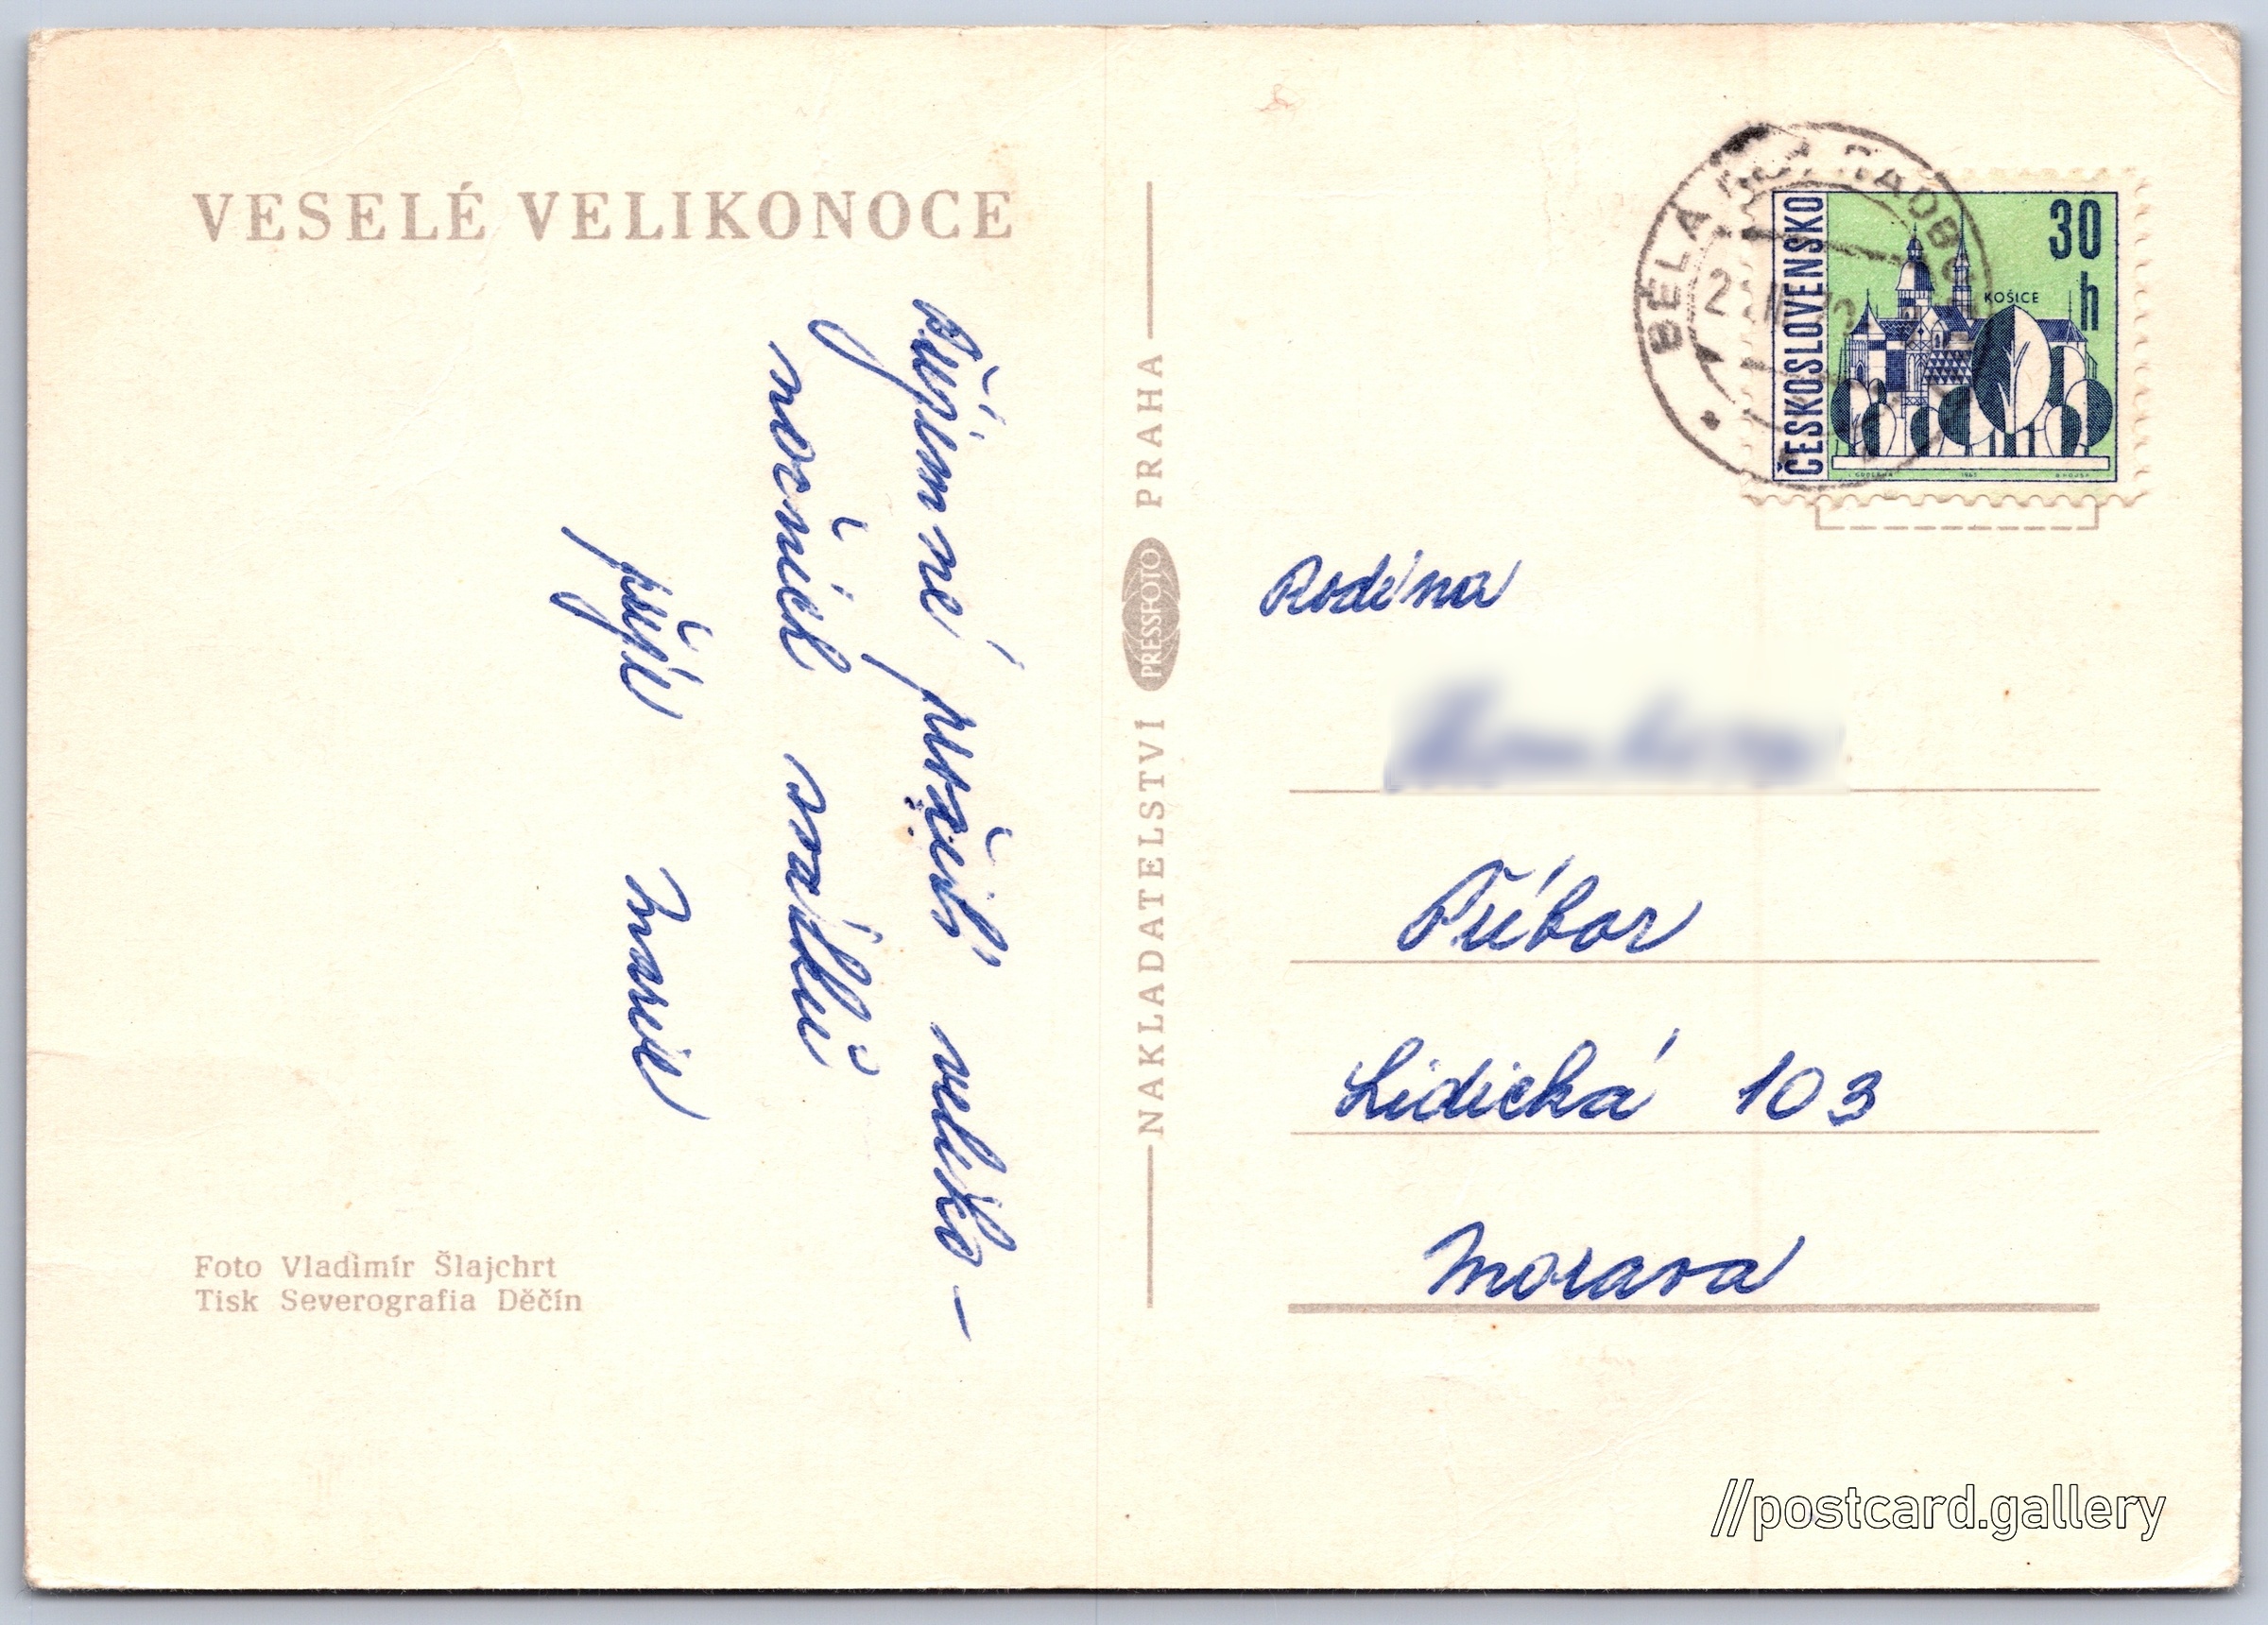 VESELÉ VELIKONOCE
Příjemné prožití veliko-
nočních svátků
přeje
Foto Vladimír Šlajchrt
Tisk Severografia Děčín
NAKLADATELSTVÍ PRESSFOTO PRAHA
BĚLÁ
ČESKOSLOVENSKO
30
h
KOŠICE
Rodina
Příbor
Lidická 103
Morava
//postcard.gallery